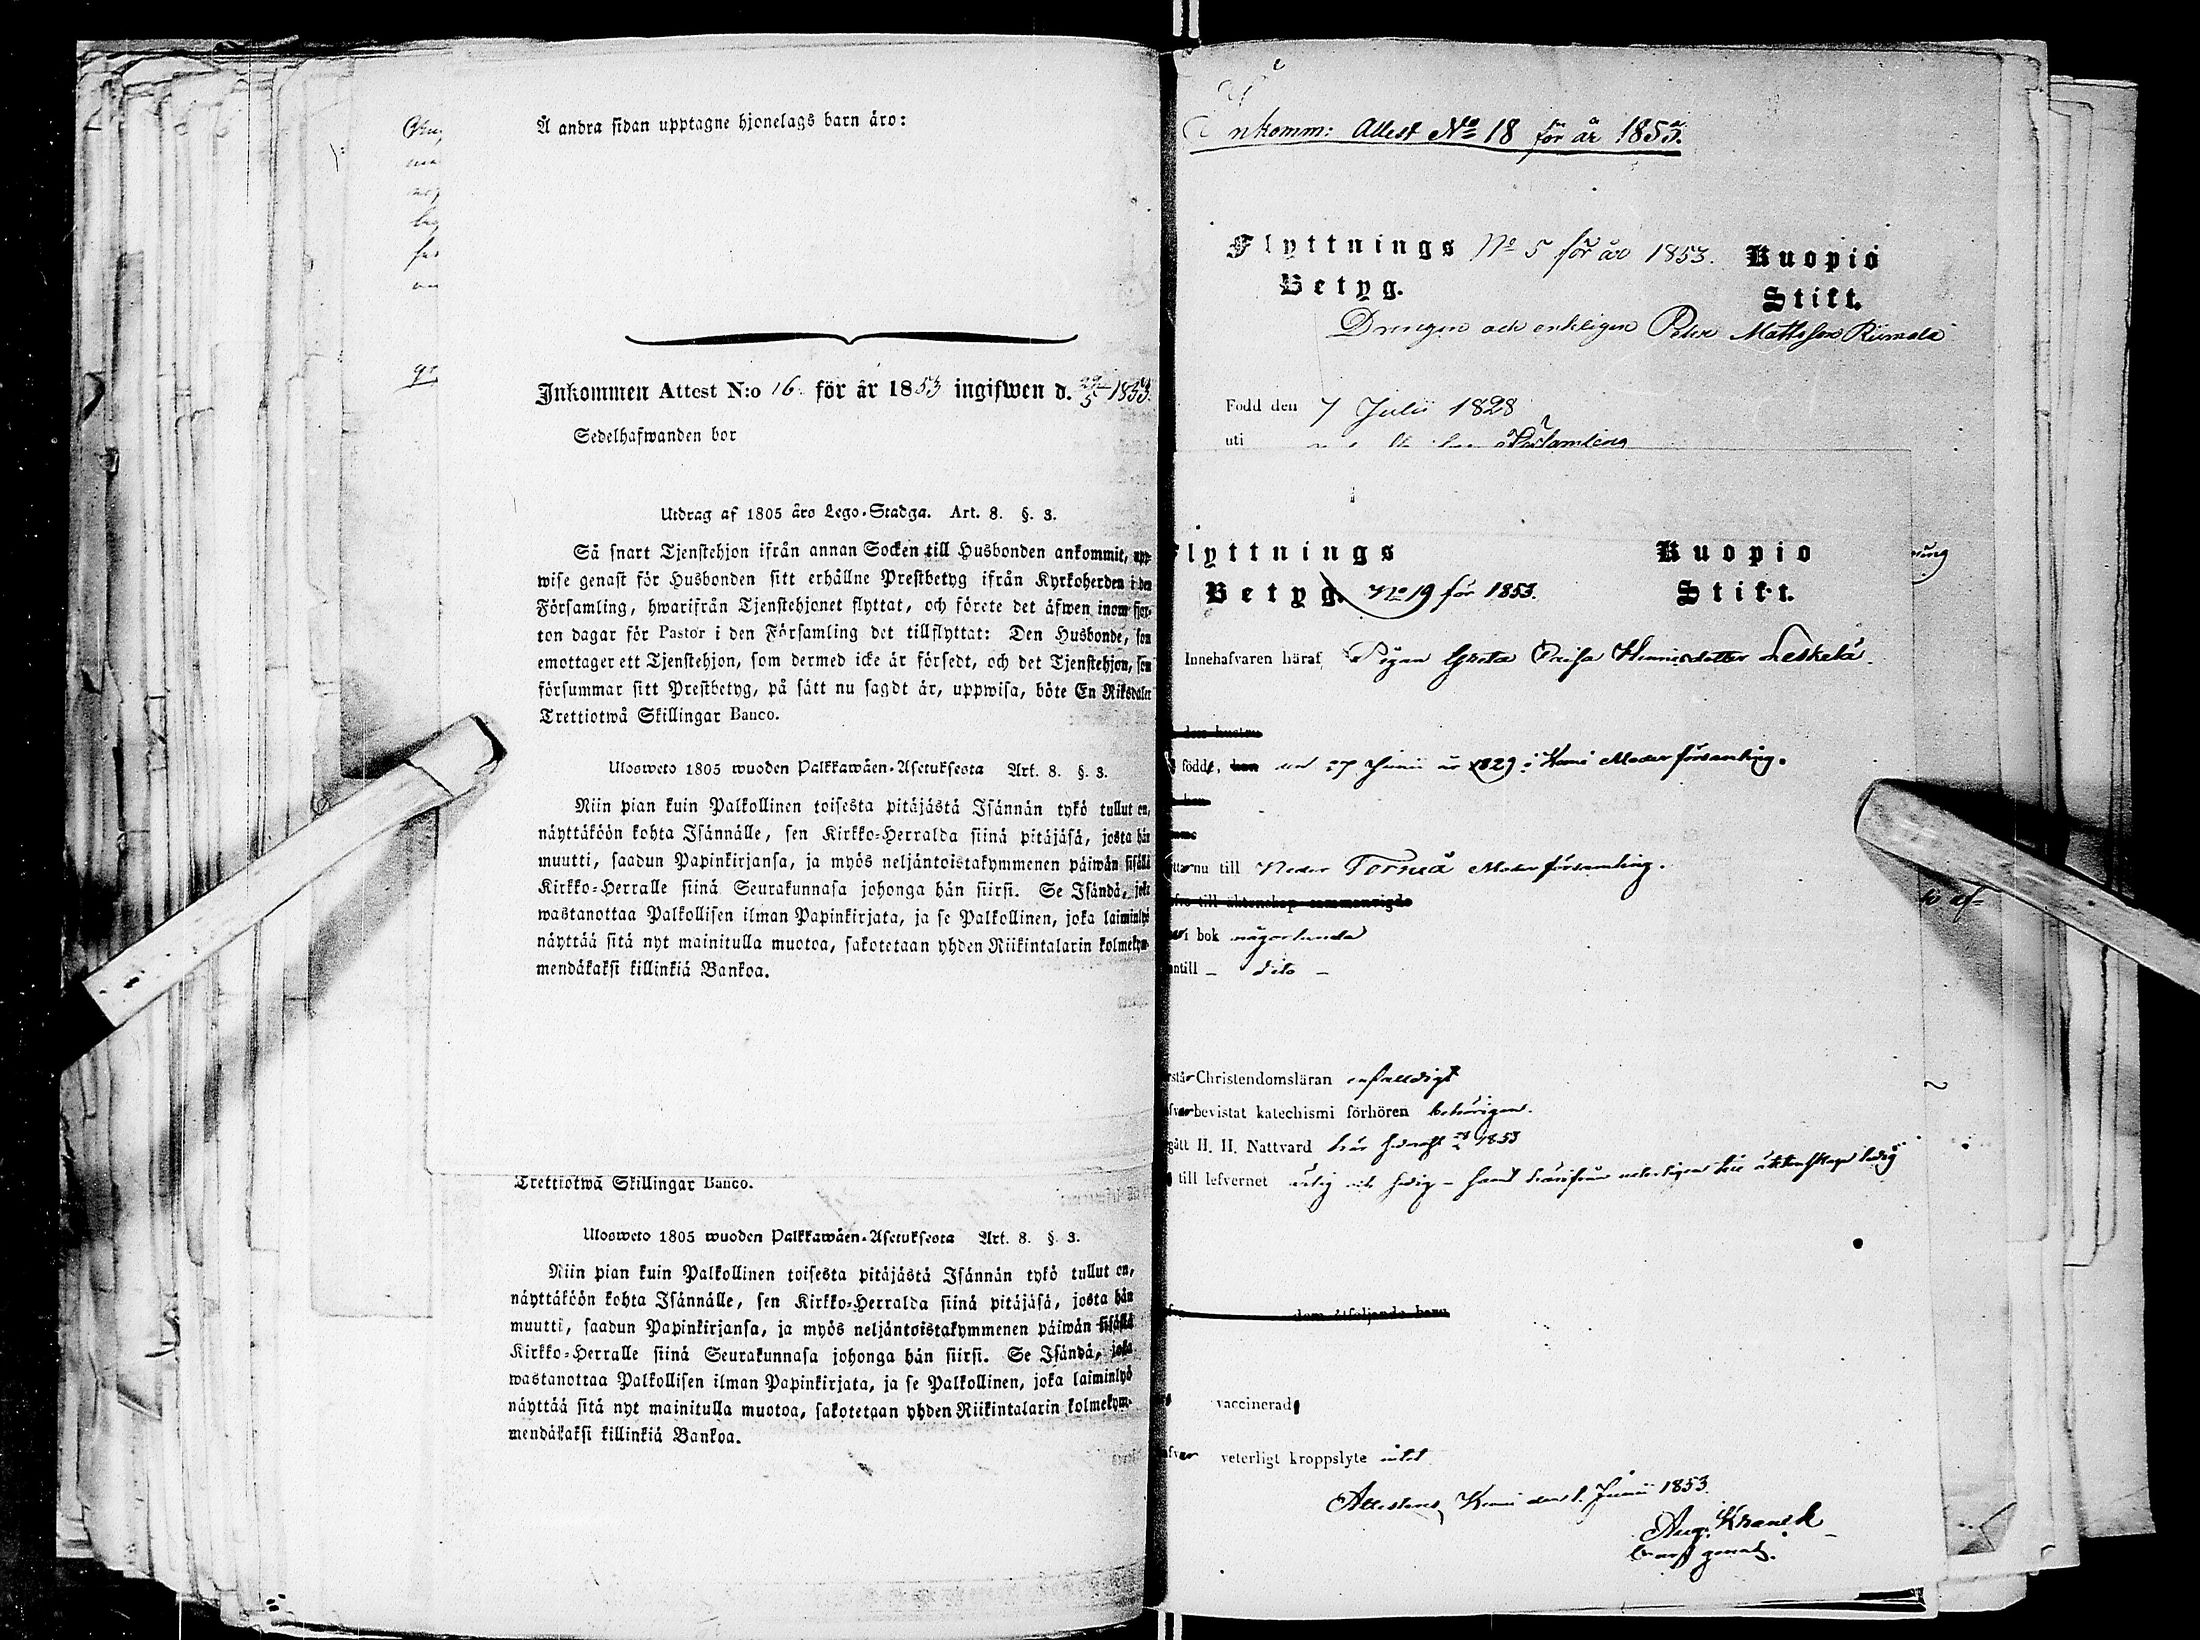 Å andra sidan upptagne hjonelags barn äro:
Inkommen Attest N:o 16. för år 1853 ingifwen d. 29/5 1853.
Sedelhafwanden bor
Utdrag af 1805 års Lego-Stadga. Art. 8. §. 3.
Så snart Tjenstehjon ifrån annan Socken till Husbonden ankommit, upp-
wise genast för Husbonden sitt erhållne Prestbetyg ifrån Kyrkoherden i den
Församling, hwarifrån Tjenstehjonet flyttat, och förete det äfwen inom fjor-
ton dagar för Pastor i den Församling det tillflyttat: Den Husbonde, som
emottager ett Tjenstehjon, som dermed icke är försedt, och det Tjenstehjon, som
försummar sitt Prestbetyg, på sätt nu sagdt är, uppwisa, böte En Riksdaler
Trettiotwå Skillingar Banco.
Ulosweto 1805 wuoden Palkkawäen-Asetuksesta Art. 8. §. 3.
Niin pian kuin Palkollinen toisesta pitäjästä Isännän tykö tullut on,
näyttäköön kohta Isännälle, sen Kirkko-Herralda siinä pitäjäsä, josta hän
muutti, saadun Papinkirjansa, ja myös neljäntoistakymmenen päiwän sisällä
Kirkko-Herralle siinä Seurakunnasa johonga hän siirsi. Se Isändä, joka
wastanottaa Palkollisen ilman Papinkirjata, ja se Palkollinen, joka laiminlyö
näyttää sitä nyt mainitulla muotoa, sakotetaan yhden Riikintalarin kolmekym-
mendäkaksi killinkiä Bankoa.
Trettiotwå Skillingar Banco.
Ulosweto 1805 wuoden Palkkawäen-Asetuksesta Art. 8. §. 3.
Niin pian kuin Palkollinen toisesta pitäjästä Isännän tykö tullut on,
näyttäköön kohta Isännälle, sen Kirkko-Herralda siinä pitäjäsä, josta hän
muutti, saadun Papinkirjansa, ja myös neljäntoistakymmenen päiwän sisällä
Kirkko-Herralle siinä Seurakunnasa johonga hän siirsi. Se Isändä, joka
wastanottaa Palkollisen ilman Papinkirjata, ja se Palkollinen, joka laiminlyö
näyttää sitä nyt mainitulla muotoa, sakotetaan yhden Riikintalarin kolmekym-
mendäkaksi killinkiä Bankoa.
Inkomm: Attest No 18 för år 1853.
Flyttnings No 5 för år 1853. Kuopio
Betyg. Stift.
Drengen och enkligen Petter Mattsson Riimala
Född den 7 Julii 1828
uti Församling
Flyttnings Kuopio
Betyg. No 19 för 1853. Stift.
Innehafvaren häraf Pigan Greta Priisa Henricsdotter Leskelä.
född, den 27 Junii år 1829 i Kemi Moderförsamling.
nu till Neder Torneå Moderförsamling.
till äktenskap sammanvigde
i bok någorlunda
antill – dito –
Christendomsläran enfalldigt
bevistat katechismi förhören behörigen.
gått H. H. Nattvard här 1853
till lefvernet ärlig och – härifrån till äktenskap ledig
dem åtföljande barn
vaccinerad
veterligt kroppslyte intet
Attesteras, Kemi den 1. Junii 1853.
Aug. Kranck